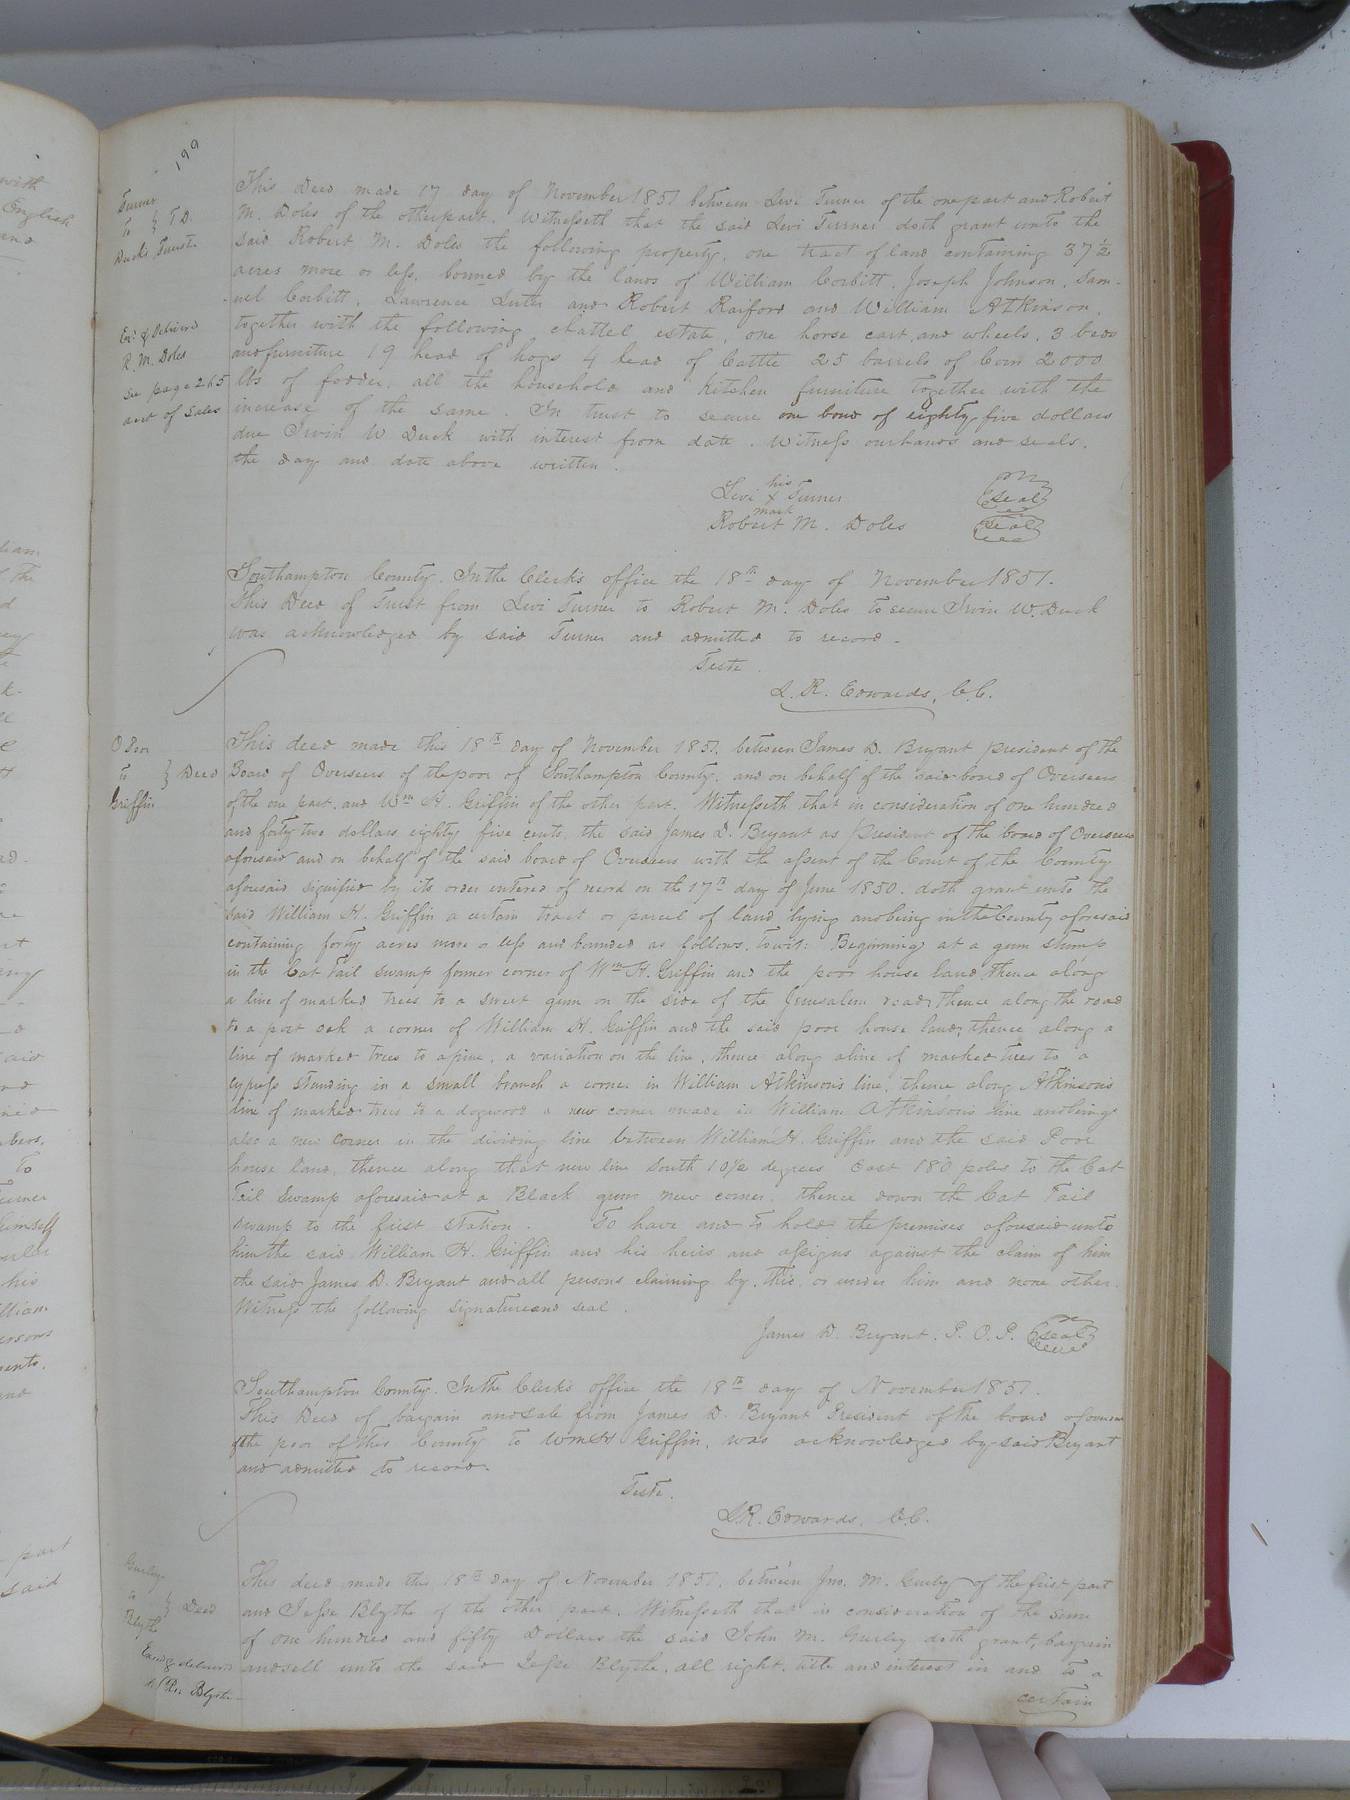 199
Turner
To } T.D.
Ducks Trustee
Ex.d & Delivered
R. M. Doles
see page 265
acct of Sales
This Deed made 17 day of November 1851 between Levi Turner of the one part and Robert
M. Doles of the other part. Witnesseth that the said Levi Turner doth grant unto the
said Robert M. Doles the following property, one tract of land containing 37 1/2
acres more or less, bouned by the lands of William Corbitt, Joseph Johnson, Sam-
uel Corbitt, Lawrence Luter and Robert Raiford and William Atkinson,
together with the following chattel estate, one horse cart and wheels, 3 beds
and furniture 19 head of hogs 4 head of Cattle 25 barrels of Corn 2000
lbs of fodder, all the household and Kitchen furniture together with the
increase of the same. In trust to secure one bond of eighty five dollars
due Irvin W Duck with interest from date. Witness our hands and seals.
the day and date above written.
Levi his X mark Turner (Seal)
Robert M. Doles (Seal)
Southampton County. In the Clerk's office the 18th day of November 1851.
This Deed of Trust from Levi Turner to Robert M. Doles to secure Irvin W. Duck
was acknowledged by said Turner and admitted to record.
Teste
L. R. Edwards, C.C.
O Poor
to } Deed
Griffin
This deed made this 18th day of November 1851, between James D. Bryant president of the
Board of Overseers of the poor of Southampton County, and on behalf of the said board of Overseers
of the one part, and Wm H. Griffin of the other part. Witnesseth that in consideration of one hundred
and forty two dollars eighty five cents, the said James D. Bryant as President of the board of Overseers
aforesaid and on behalf of the said board of Overseers with the assent of the Court of the County
aforesaid signified by its order entered of record on the 17th day of June 1850. doth grant unto the
said William H. Griffin a certain tract or parcel of land lying and being in the County aforesaid
containing forty acres more or less and bounded as follows, Towit: Beginning at a gum stump
in the Cat Tail swamp former corner of Wm H. Griffin and the poor house land, thence along
a line of marked trees to a sweet gum on the side of the Jerusalem road; thence along the road
to a post oak a corner of William H. Griffin and the said poor house land; thence along a
line of marked trees to a pine, a variation on the line, thence along a line of marked trees to a
cypress standing in a small branch a corner in William Atkinson's line, thence along Atkinson's
line of marked trees to a dogwood a new corner made in William Atkinson's line and being
also a new corner in the dividing line between William H. Griffin and the said Poor
house land, thence along that new line South 10 1/2 degrees East 180 poles to the Cat
Tail Swamp aforesaid at a Black gum new corner. thence down the Cat Tail
swamp to the first station. To have and to hold the premises aforesaid unto
him the said William H. Griffin and his heirs and assigns against the claim of him
the said James D. Bryant and all persons claiming by, thro, or under him and none other.
Witness the following signature and seal.
James D. Bryant. P. O. P. (Seal)
Southampton County. In the Clerk's office the 18th day of November 1851.
This Deed of bargain and sale from James D. Bryant President of the board of overseers
of the poor of this County to Wm H Griffin, was acknowledged by said Bryant
and admitted to record.
Teste.
L. R. Edwards, C.C.
Gurley
to } Deed
Blythe
Exand & delivered
This deed made this 18th day of November 1851, between Jno. M. Gurley of the first part
and Jesse Blythe of the other part. Witnesseth that in consideration of the sum
of one hundred and fifty Dollars the said John M. Gurley doth grant, bargain
and sell unto the said Jesse Blythe, all right, title and interest in and to a
certain